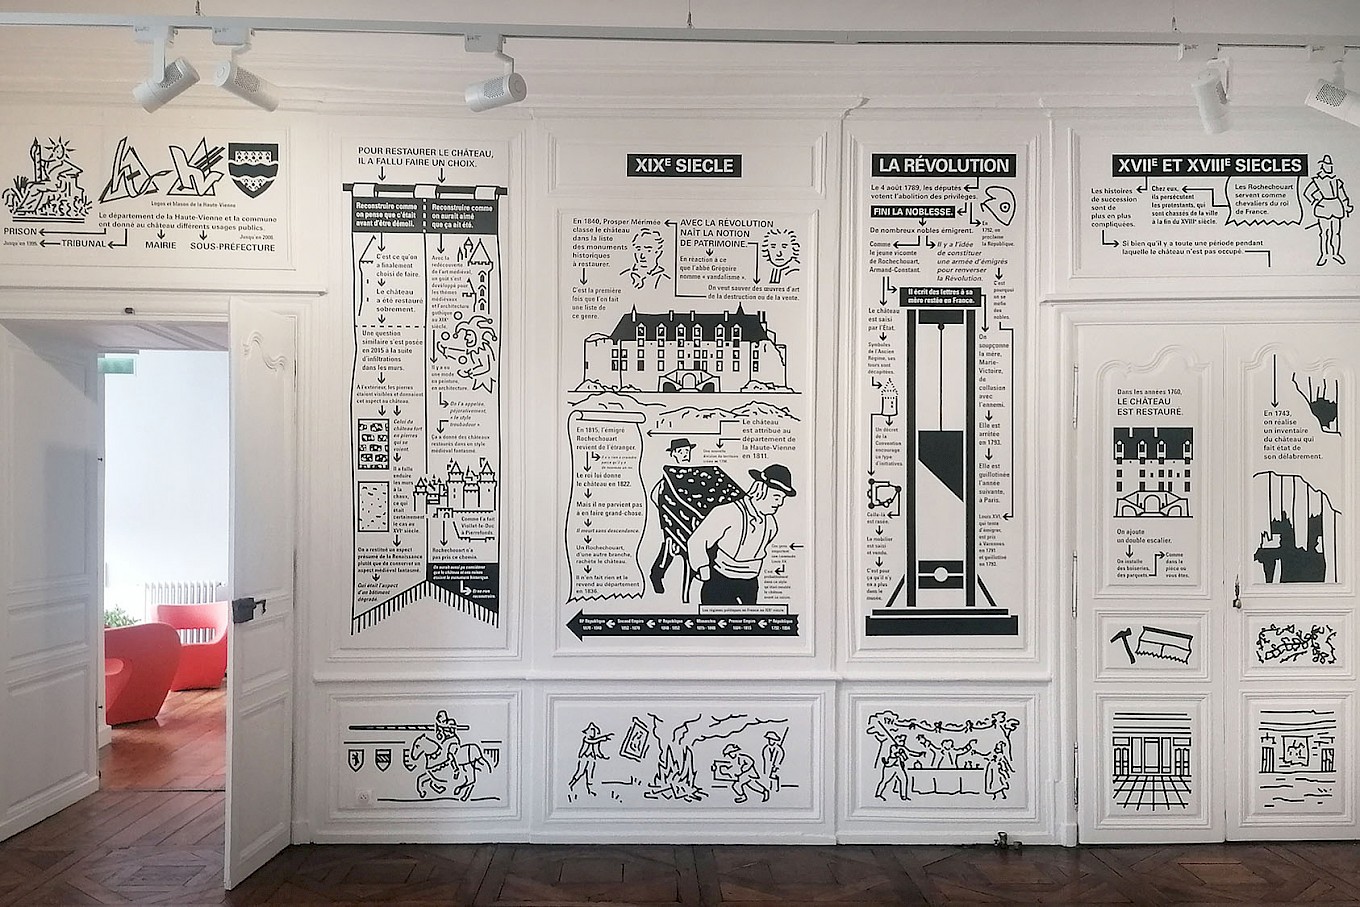 Logos et blason de la Haute-Vienne
Le département de la Haute-Vienne et la commune
ont donné au château différents usages publics.
PRISON
Jusqu'en 1995.
TRIBUNAL
MAIRIE
Jusqu'en 2006
SOUS-PRÉFECTURE
POUR RESTAURER LE CHÂTEAU,
IL A FALLU FAIRE UN CHOIX.
Reconstruire comme
on pense que c'était
avant d'être démoli.
C'est ce qu'on
a finalement
choisi de faire.
Le château
a été restauré
sobrement.
Une question
similaire s'est posée
en 2015 à la suite
d'infiltrations
dans les murs.
À l'extérieur, les pierres
étaient visibles et donnaient
cet aspect au château.
Celui du
château fort
en pierres
qui se
voient.
Il a fallu
enduire
les murs
à la
chaux,
ce qui
était
certainement
le cas au
XVIe siècle.
On a restitué un aspect
présumé de la Renaissance
plutôt que de conserver un
aspect médiéval fantasmé.
Qui était l'aspect
d'un bâtiment
dégradé.
Reconstruire comme
on aurait aimé
que ça ait été.
Avec la
redécouverte
de l'art médiéval,
un goût s'est
développé pour
les thèmes
médiévaux
et l'architecture
gothique
au XIXe
siècle.
Il y a eu
une mode
en peinture,
en architecture.
On l'a appelée,
péjorativement,
« le style
troubadour »
Ça a donné des châteaux
restaurés dans un style
médiéval fantasmé.
Comme l'a fait
Viollet-le-Duc
à Pierrefonds.
Rochechouart n'a
pas pris ce chemin.
XIXE SIECLE
En 1840, Prosper Mérimée
classe le château
dans la liste
des monuments
historiques
à restaurer.
C'est la première
fois que l'on fait
une liste de
ce genre.
AVEC LA RÉVOLUTION
NAÎT LA NOTION
DE PATRIMOINE.
En réaction à ce
que l'abbé Grégoire
nomme « vandalisme ».
On veut sauver des œuvres d'art
de la destruction ou de la vente.
Le château
est attribué au
département de
la Haute-Vienne
en 1811.
En 1815, l'émigré
Rochechouart
revient de l'étranger.
Le roi lui donne
le château en 1822.
Mais il ne parvient pas
à en faire grand-chose.
Il meurt sans descendance.
Un Rochechouart,
d'une autre branche,
rachète le château.
Il n'en fait rien et le
revend au département
en 1836.
Les régimes politiques en France au XIXe siècle
IIIe République
Second Empire
IIe République
Monarchies
Premier Empire
Ire République
LA RÉVOLUTION
Le 4 août 1789, les députés
votent l'abolition des privilèges.
FINI LA NOBLESSE.
En
1792, on
proclame
la République.
De nombreux nobles émigrent.
Comme
le jeune vicomte
de Rochechouart,
Armand-Constant.
Il y a l'idée
de constituer
une armée d'émigrés
pour renverser
la Révolution.
C'est
pourquoi
on se
méfie
des
nobles.
Il écrit des lettres à sa
mère restée en France.
Le château
est saisi
par l'État.
Symboles
de l'Ancien
Régime, ses
tours sont
décapitées.
Un décret
de la
Convention
encourage
ce type
d'initiatives.
Celle-là
est rasée.
Le mobilier
est saisi
et vendu.
C'est pour
ça qu'il n'y
en a plus
dans le
musée.
On
soupçonne
la mère,
Marie-
Victoire,
de
collusion
avec
l'ennemi.
Elle est
arrêtée
en 1793.
Elle est
guillotinée
l'année
suivante,
à Paris.
Louis XVI,
qui tente
d'émigrer,
est pris
à Varennes
en 1791
et guillotiné
en 1793.
XVIIE ET XVIIIE SIECLES
Les histoires
de succession
sont de
plus en plus
compliquées.
Chez eux,
ils persécutent
les protestants, qui
sont chassés de la ville
à la fin du XVIIe siècle.
Les Rochechouart
servent comme
chevaliers du roi
de France.
Si bien qu'il y a toute une période pendant
laquelle le château n'est pas occupé.
Dans les années 1760,
LE CHÂTEAU
EST RESTAURÉ.
On ajoute
un double escalier.
On installe
des boiseries,
des parquets.
Comme
dans la
pièce où
vous êtes.
En 1743,
on réalise
un inventaire
du château qui
fait état de
son délabrement.